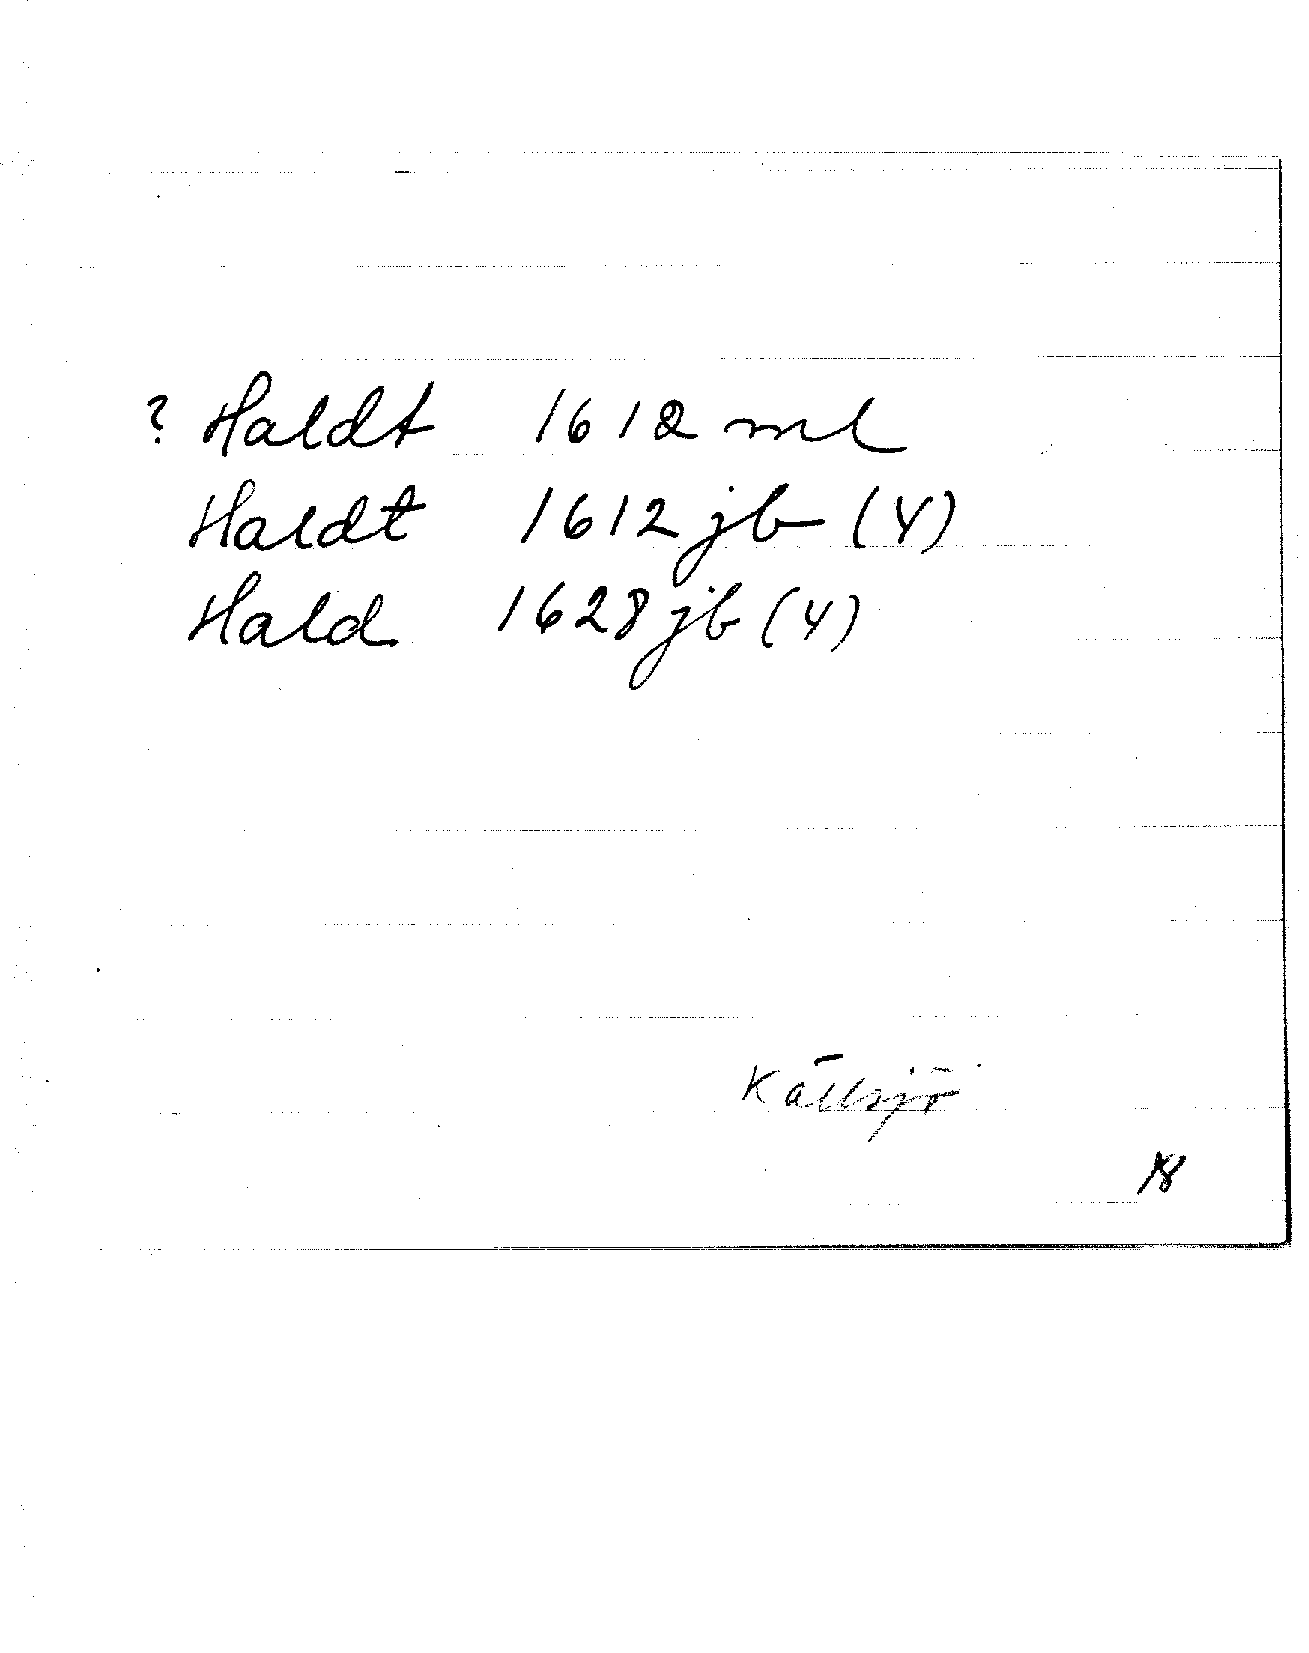 ? Haldt 1612 ml
Haldt 1612 jb (4)
Hald 1628 jb (4)
Källsjö